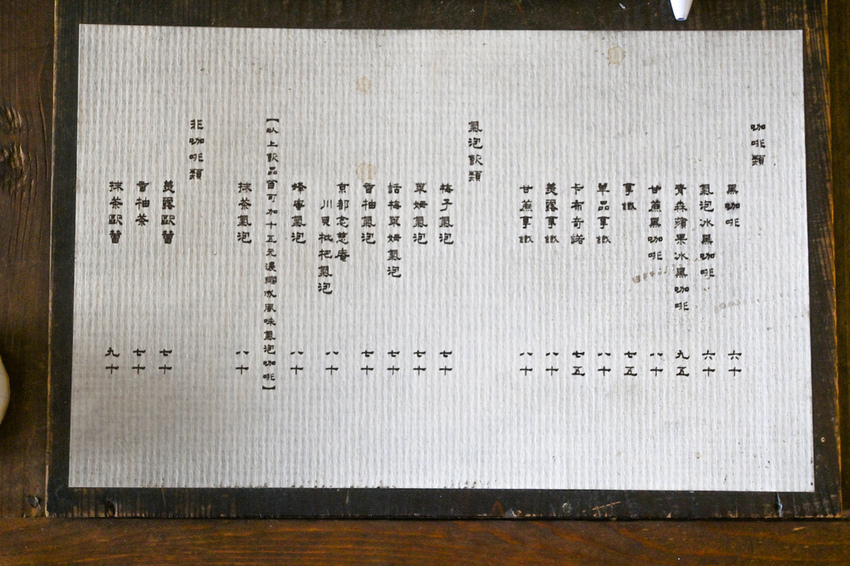 咖啡類
黑咖啡 六十
氣泡冰黑咖啡 六十
青森蘋果冰黑咖啡 九五
甘蔗黑咖啡 八十
拿鐵 七五
單品拿鐵 八十
卡布奇諾 七五
美露拿鐵 八十
甘蔗拿鐵 八十
氣泡飲類
梅子氣泡 七十
草姆氣泡 七十
話梅草姆氣泡 七十
香柚氣泡 七十
京都念慈庵
川貝枇杷氣泡 八十
蜂蜜氣泡 八十
【以上飲品皆可加十五元濃縮成風味氣泡咖啡】
抹茶氣泡 八十
非咖啡類
美露歐蕾 七十
香柚茶 七十
抹茶歐蕾 九十